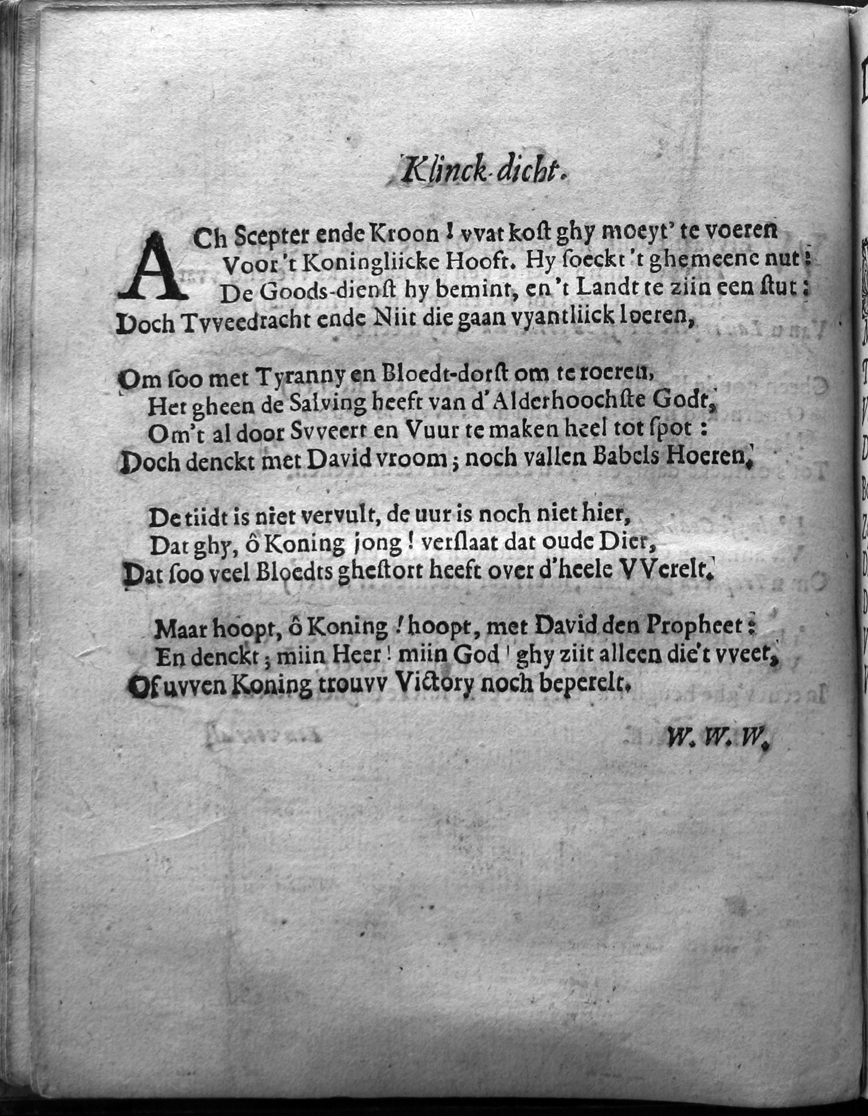 Klinck-dicht.
ACh Scepter ende Kroon! vvat kost ghy moeyt' te voeren
Voor 't Koningliicke Hooft. Hy soeckt 't ghemeene nut:
De Goods-dienst hy bemint, en 't Landt te ziin een stut:
Doch Tvveedracht ende Niit die gaan vyantliick loeren,
Om soo met Tyranny en Bloedt-dorst om te roeren,
Het gheen de Salving heeft van d'Alderhoochste Godt,
Om't al door Svveert en Vuur te maken heel tot spot:
Doch denckt met David vroom; noch vallen Babels Hoeren.
De tiidt is niet vervult, de uur is noch niet hier,
Dat ghy, ô Koning jong! verslaat dat oude Dier,
Dat soo veel Bloedts ghestort heeft over d'heele VVerelt.
Maar hoopt, ô Koning! hoopt, met David den Propheet:
En denckt; miin Heer! miin God! ghy ziit alleen die't vveet,
Of uvven Koning trouvv Victory noch beperelt.
W. W. W.